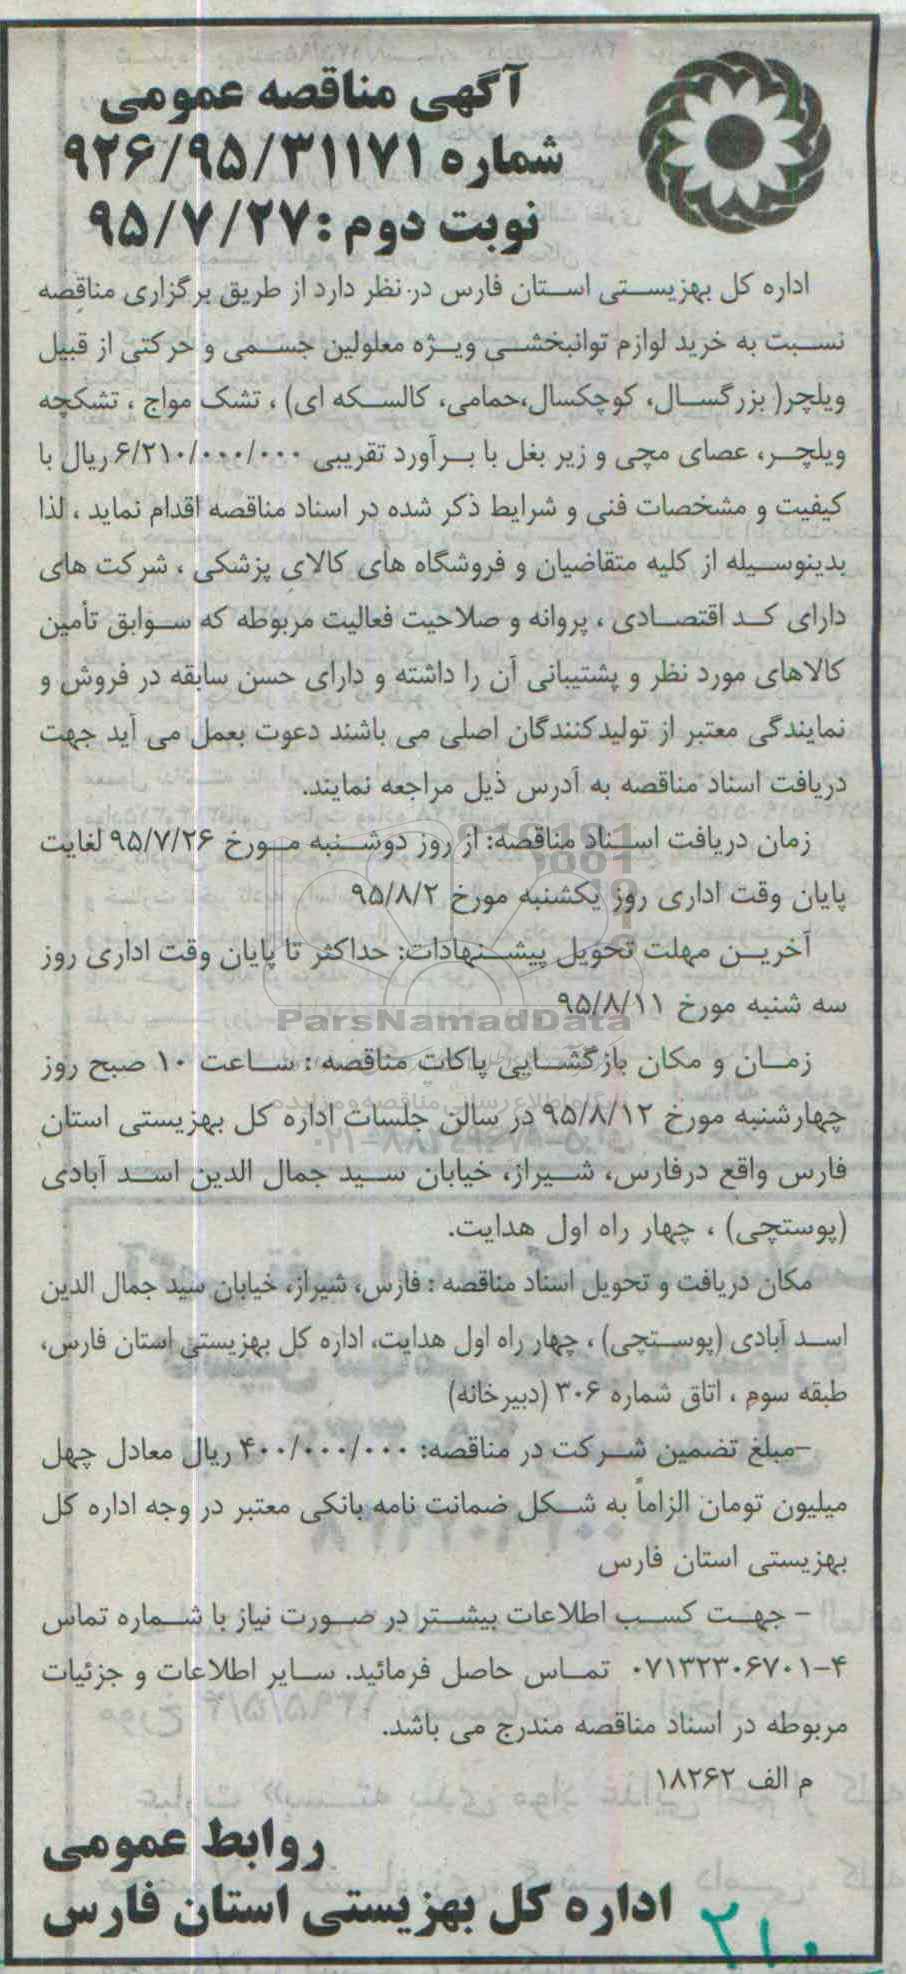 آگهی مناقصه عمومی
شماره ۹۲۶/۹۵/۳۱۱۷۱
نوبت دوم :۹۵/۷/۲۷
اداره کل بهزیستی استان فارس در نظر دارد از طریق برگزاری مناقصه
نسبت به خرید لوازم توانبخشی ویژه معلولین جسمی و حرکتی از قبیل
ویلچر( بزرگسال، کوچکسال،حمامی، کالسکه ای) ، تشک مواج ، تشکچه
ویلچر، عصای مچی و زیر بغل با برآورد تقریبی ۶/۲۱۰/۰۰۰/۰۰۰ ریال با
کیفیت و مشخصات فنی و شرایط ذکر شده در اسناد مناقصه اقدام نماید ، لذا
بدینوسیله از کلیه متقاضیان و فروشگاه های کالای پزشکی ، شرکت های
دارای کد اقتصادی ، پروانه و صلاحیت فعالیت مربوطه که سوابق تأمین
کالاهای مورد نظر و پشتیبانی آن را داشته و دارای حسن سابقه در فروش و
نمایندگی معتبر از تولیدکنندگان اصلی می باشند دعوت بعمل می آید جهت
دریافت اسناد مناقصه به آدرس ذیل مراجعه نمایند.
زمان دریافت اسناد مناقصه: از روز دوشنبه مورخ ۹۵/۷/۲۶ لغایت
پایان وقت اداری روز یکشنبه مورخ ۹۵/۸/۲
آخرین مهلت تحویل پیشنهادات: حداکثر تا پایان وقت اداری روز
سه شنبه مورخ ۹۵/۸/۱۱
ParsNamadData
زمان و مکان بازگشایی پاکات مناقصه : ساعت ۱۰ صبح روز
چهارشنبه مورخ ۹۵/۸/۱۲ در سالن جلسات اداره کل بهزیستی استان
فارس واقع درفارس، شیراز، خیابان سید جمال الدین اسد آبادی
(پوستچی) ، چهار راه اول هدایت.
مکان دریافت و تحویل اسناد مناقصه : فارس، شیراز، خیابان سید جمال الدین
اسد آبادی (پوستچی) ، چهار راه اول هدایت، اداره کل بهزیستی استان فارس،
طبقه سوم ، اتاق شماره ۳۰۶ (دبیرخانه)
-مبلغ تضمین شرکت در مناقصه: ۴۰۰/۰۰۰/۰۰۰ ریال معادل چهل
میلیون تومان الزاماً به شکل ضمانت نامه بانکی معتبر در وجه اداره کل
بهزیستی استان فارس
- جهت کسب اطلاعات بیشتر در صورت نیاز با شماره تماس
۰۷۱۳۲۳۰۶۷۰۱-۴ تماس حاصل فرمائید. سایر اطلاعات و جزئیات
مربوطه در اسناد مناقصه مندرج می باشد.
م الف ۱۸۲۶۲
روابط عمومی
اداره کل بهزیستی استان فارس
۲۱۰